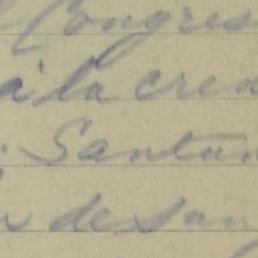 Congres
á la crea
Santan
x de San